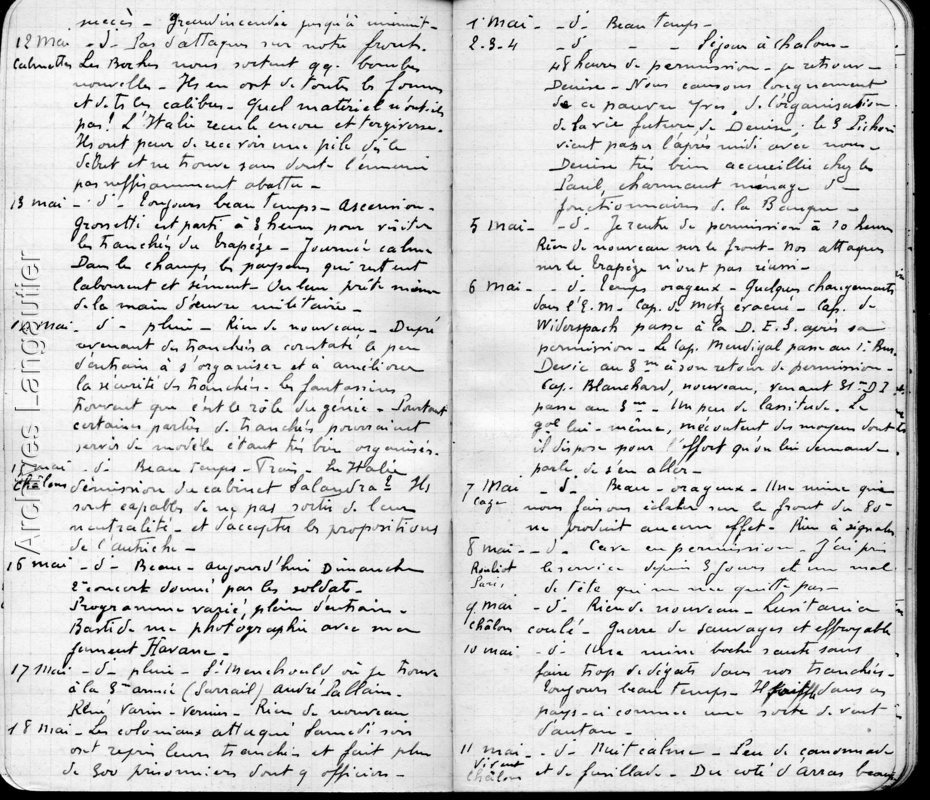 succès - Grand incendie jusqu'à minuit -
12 Mai - d° - Pas d'attaques sur notre front.
Calmettes Les Boches nous sortent qq. bombes
nouvelles - Ils en ont de toutes les formes
et de ts les calibres - Quel matériel n'ont-ils
pas! L'Italie recule encore et tergiverse.
Ils ont peur de recevoir une pile dès le
début et ne trouve sans doute l'ennemi
pas suffisamment abattu -
13 mai - d° - Toujours beau temps - Ascension -
Grossetti est parti à 3 heures pour visiter
les tranchées du trapèze - Journée calme
Dans les champs les paysans qui restent
labourent et sèment - On leur prête même
de la main d'œuvre militaire -
14 mai - d° - pluie - Rien de nouveau - Dupré
revenant des tranchées a constaté le peu
d'entrain à s'organiser et à améliorer
la sécurité des tranchées - Les fantassins
trouvent que c'est le rôle du génie - Pourtant
certaines parties de tranchées pourraient
servir de modèle étant très bien organisées.
15 mai - d° - Beau temps - Frais - En Italie
Châlons démission du cabinet Salandra ? Ils
sont capables de ne pas sortir de leur
neutralité - et d'accepter les propositions
de l'autriche -
16 mai - d° - Beau - aujourd'hui Dimanche
2e concert donné par les soldats -
Programme varié plein d'entrain -
Bastide me photographie avec ma
jument Havane -
17 Mai - d° - pluie - Ste Menehould où je trouve
à la 3me armée (Sarrail) André Lallain -
René Varin - Vernier - Rien de nouveau
18 Mai - Les coloniaux attaqués Samedi soir
ont repris leurs tranchées et fait plus
de 300 prisonniers dont 9 officiers -
1 Mai - d° Beau temps -
2-3-4 - d° - - Séjour à chalons -
48 heures de permission - je retrouve
Denise - Nous causons longuement
de ce pauvre Yves, de l'organisation
de la vie future de Denise; le 3 Pichon
vient passer l'après midi avec nous -
Denise très bien accueillie chez les
Paul, charmant ménage de
fonctionnaires de la Banque -
5 Mai - - d° - Je rentre de permission à 10 heures
Rien de nouveau sur le front - Nos attaques
sur le trapèze n'ont pas réussi -
6 Mai - - d° - temps orageux - Quelques changements
dans l'E.M - Cap. de Metz évacué - Cap. de
Widerspach passe à la D.E.S. après sa
permission - Le Cap. Mendigal passe au 1er Bureau
Devic au 3me à son retour de permission -
Cap. Blanchard, nouveau, venant 31me D I
passe au 3me - Un peu de lassitude. Le
gal lui-même, mécontent des moyens dont
il dispose pour l'effort qu'on lui demande -
parle de s'en aller -
7 Mai - d° - Beau - orageux - Une mine que
nous faisons éclater sur le front du 80e
ne produit aucun effet - Rien à signaler
8 mai - - d° - Cave en permission - J'ai pris
Rouliot le service depuis 3 jours et un mal
Paris de tête qui ne me quitte pas -
9 Mai - d° - Rien de nouveau - Lusitania
Châlons coulé - Guerre de sauvages et effroyable
10 mai - d° - Une mine boche saute sans
faire trop de dégâts dans nos tranchées -
Toujours beau temps - Il dans ces
pays-ci comme une sorte de vent
d'autan -
11 mai - - d° - Nuit calme - Peu de canonnade
Châlons et de fusillade - Du coté d'Arras beaucoup
Archives Langautier